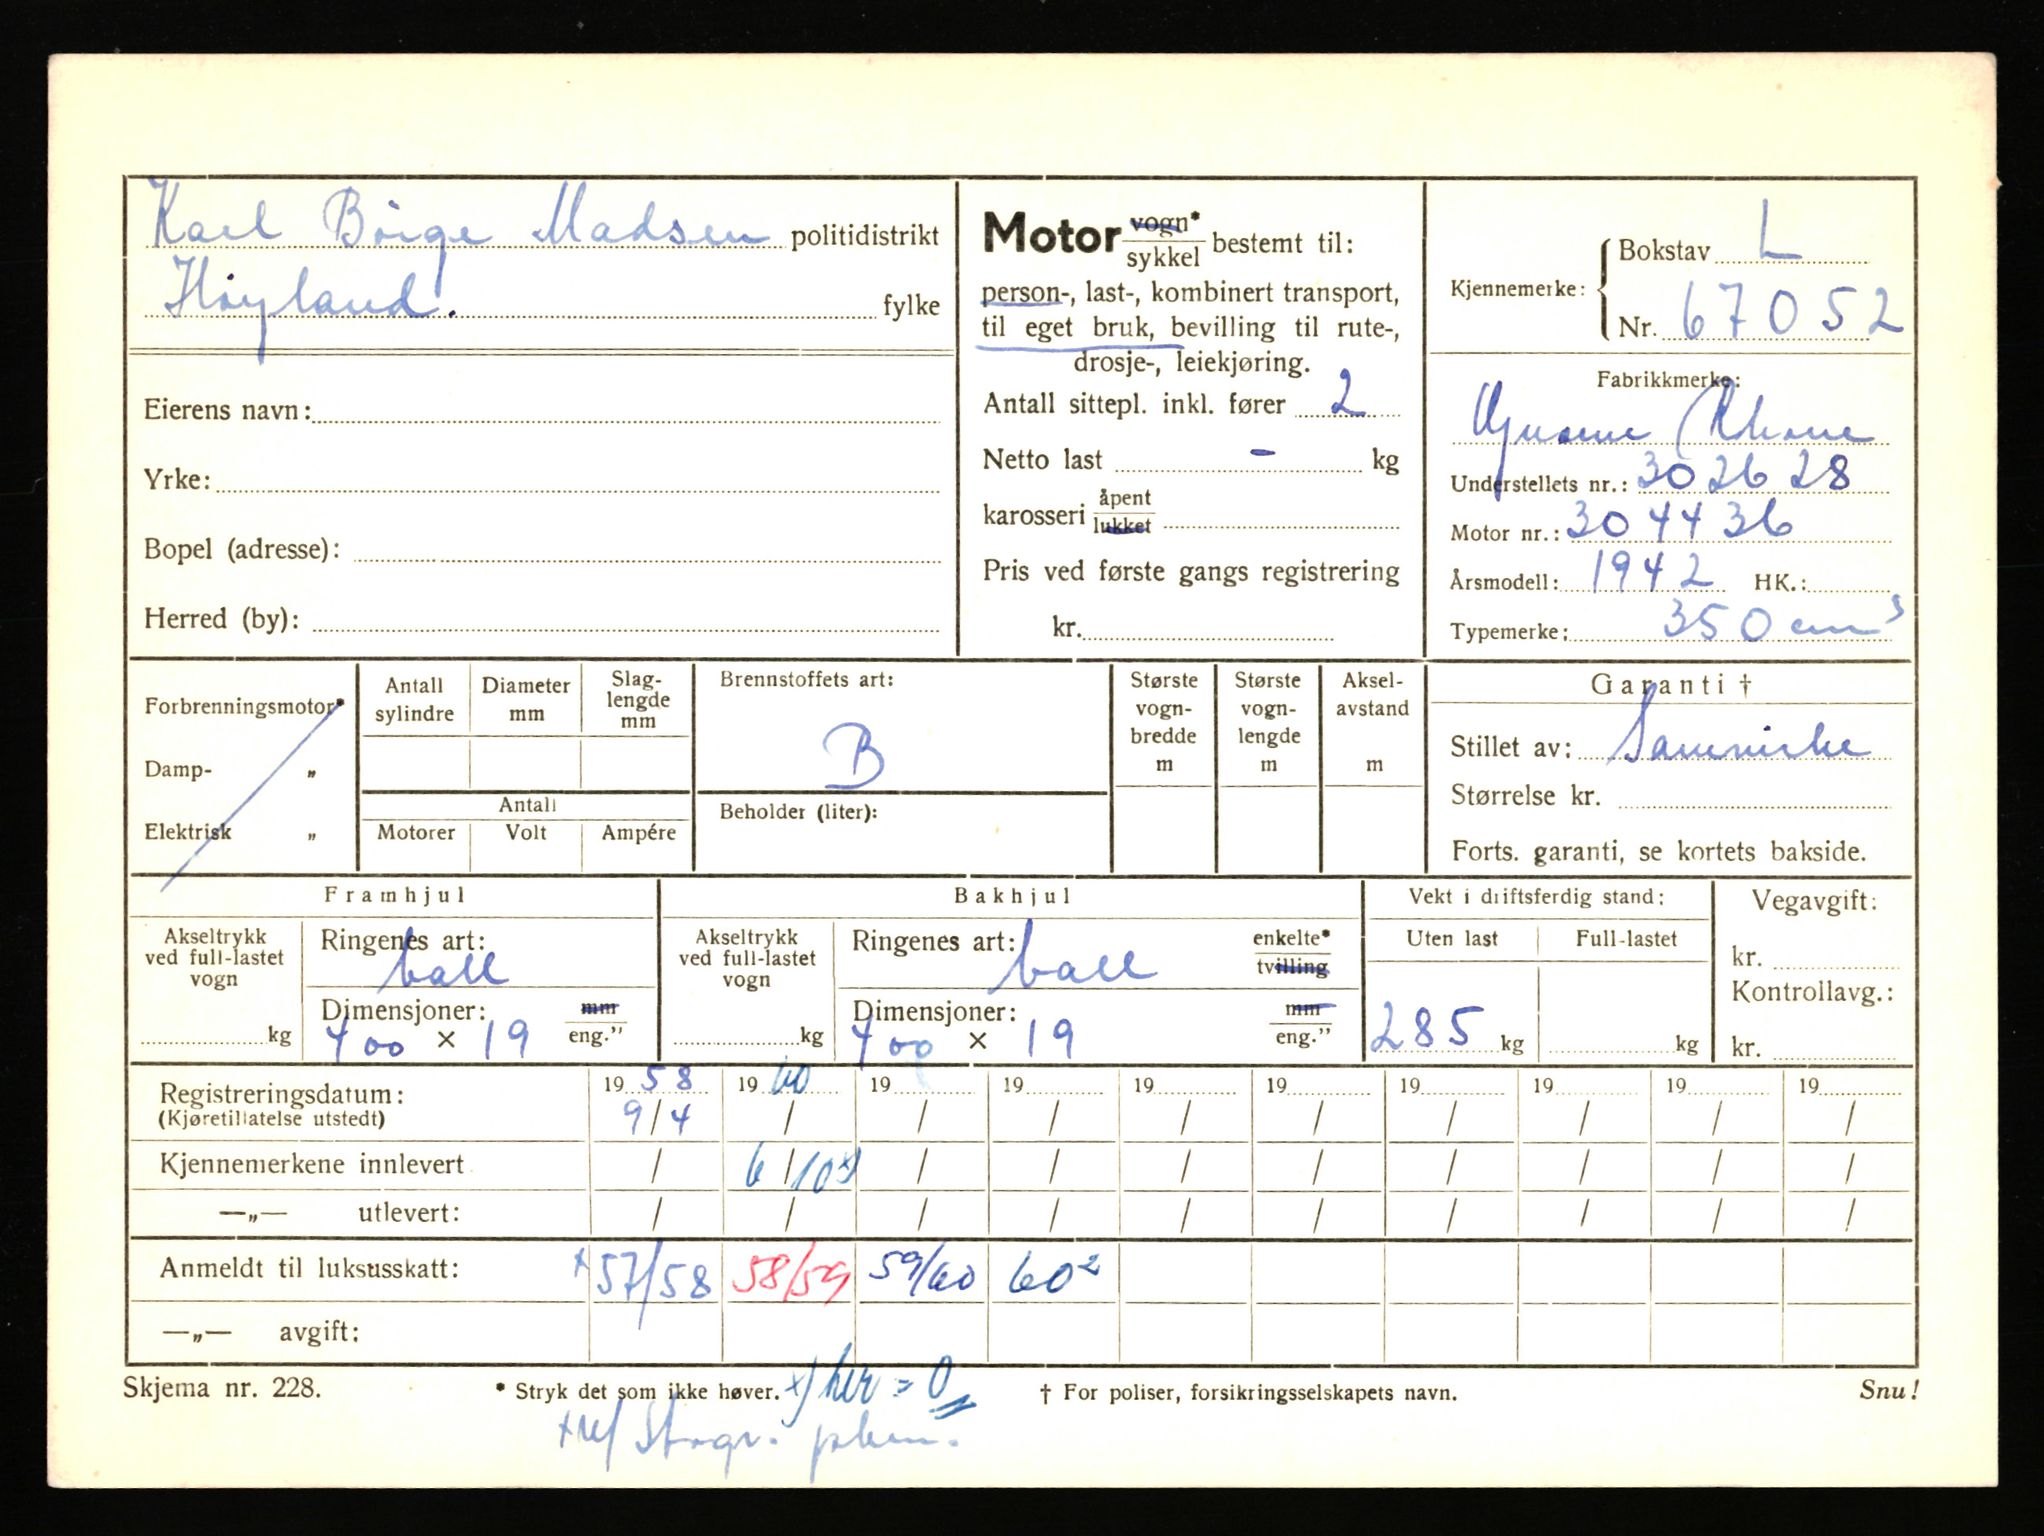 Karl Börge Madsen politidistrikt
Höyland. fylke
Eierens navn:
Yrke:
Bopel (adresse):
Herred (by):
Motor vogn* sykkel bestemt til:
person-, last-, kombinert transport,
til eget bruk, bevilling til rute-,
drosje-, leiekjøring.
Antall sittepl. inkl. fører 2
Netto last - kg
karosseri åpent lukket
Pris ved første gangs registrering
kr.
Kjennemerke: Bokstav L
Nr. 67052
Fabrikkmerke:
Gnome Rhone
Understellets nr.: 302628
Motor nr.: 304436
Årsmodell: 1942 HK.:
Typemerke: 350 cm³
Forbrenningsmotor*
Damp- „
Elektrisk „
Antall sylindre
Diameter mm
Slag-lengde mm
Antall
Motorer Volt Ampére
Brennstoffets art:
B
Beholder (liter):
Største vogn-bredde m
Største vogn-lengde m
Aksel-avstand m
Garanti †
Stillet av: Samvirke
Størrelse kr.
Forts. garanti, se kortets bakside.
Framhjul
Akseltrykk ved full-lastet vogn
kg
Ringenes art:
ball
Dimensjoner: mm
400 × 19 eng.”
Bakhjul
Akseltrykk ved full-lastet vogn
kg
Ringenes art: enkelte*
ball tvilling
Dimensjoner: mm
400 × 19 eng.”
Vekt i driftsferdig stand:
Uten last Full-lastet
285 kg kg
Vegavgift:
kr.
Kontrollavg.:
kr.
Registreringsdatum: 19 58 19 60 19 19 19 19 19 19 19 19
(Kjøretillatelse utstedt) 9/4 / / / / / / / / /
Kjennemerkene innlevert / 6/10 x) / / / / / / / /
—„— utlevert: / / / / / / / / / /
Anmeldt til luksusskatt: x 57/58 58/59 59/60 60²
—„— avgift:
Skjema nr. 228. * Stryk det som ikke høver. x) her = 0 † For poliser, forsikringsselskapets navn. Snu!